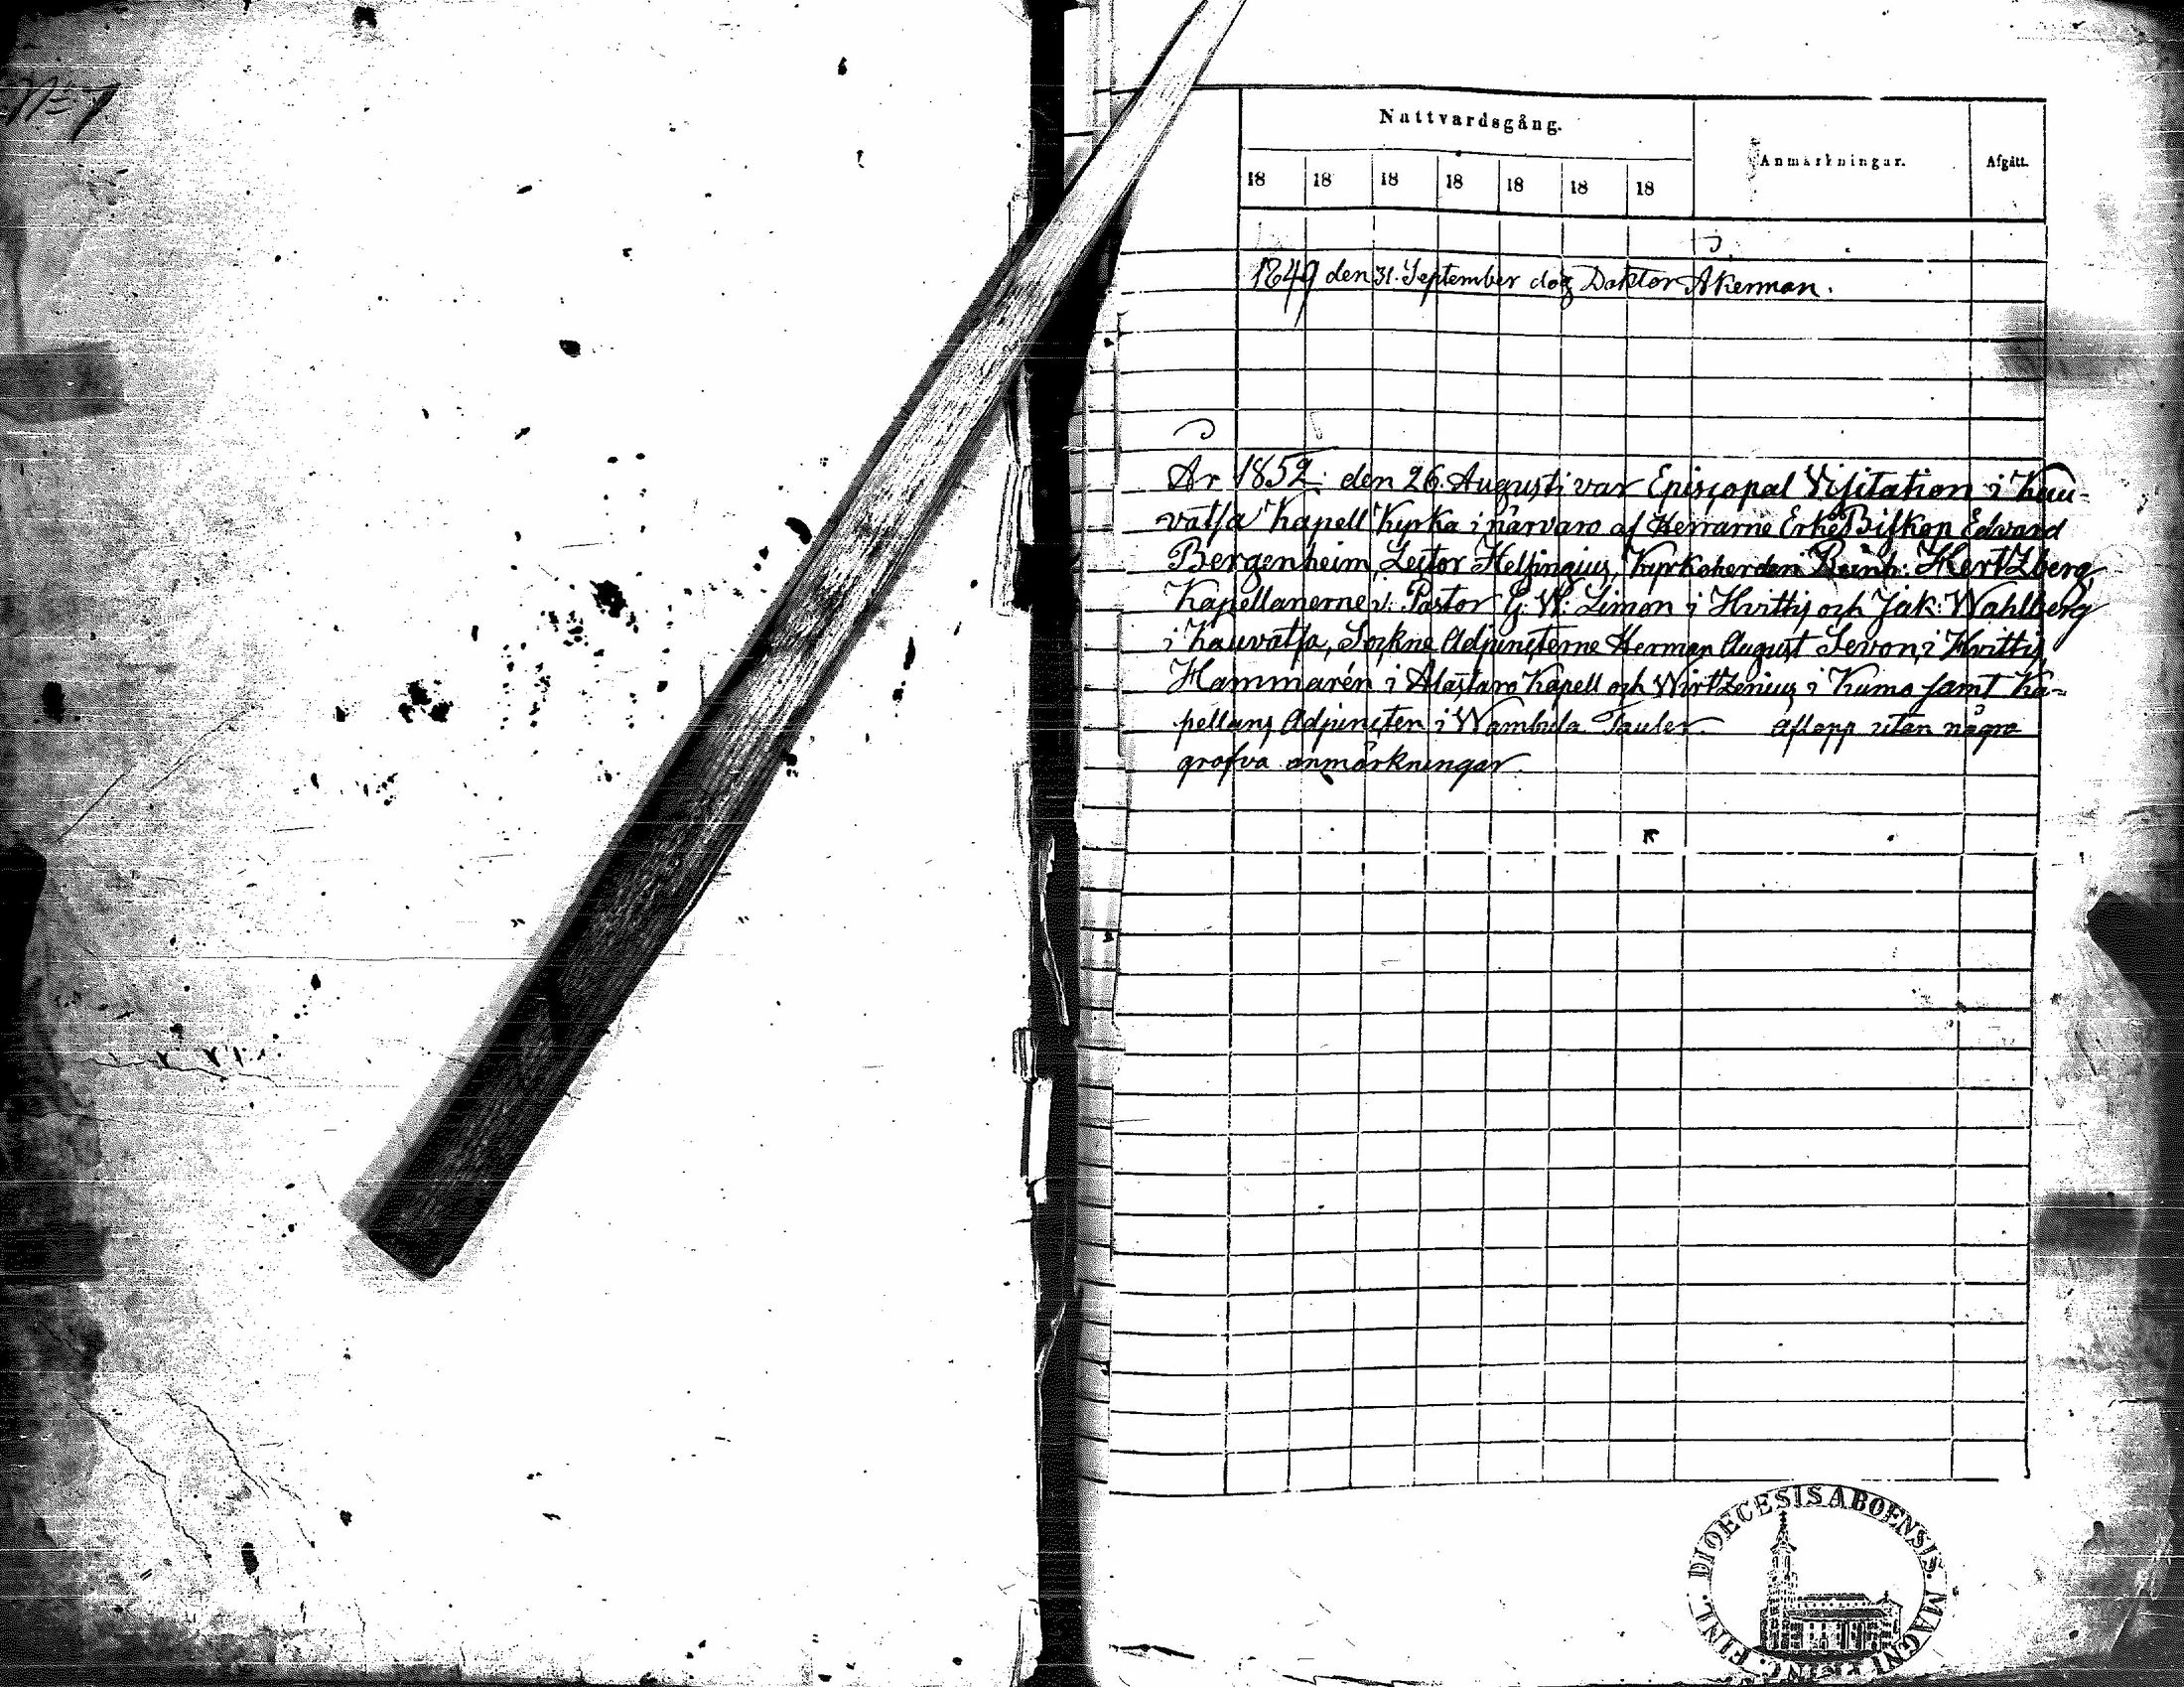 N=7
Nattvardsgång.
Anmärkningar.
Afgått.
18 18 18 18 18 18 18
1849 den 31. September dog Doktor Åkerman.
År 1852. den 26. Augusti var Episcopal Visitation i Kau-
vatsa Kapell Kyrka i närvaro af Herrarne ErkeBiskop Edvard
Bergenheim, Lector Helsingius, Kyrkoherden Reinh: Hertzberg,
Kapellanerne v. Pastor G. W. Limon i Hvittis och Jak: Wahlberg
i Kauvatsa, Sockne Adjuncterne Herman August Sevon, i Hvittis
Hammarén i Alastaro Kapell och Wirtzenius i Kumo samt Ka-
pellans Adjuncten i Wambula Tauler. aflopp utan några
grofva anmärkningar.
DIOECESIS ABOENSIS. MAGNI PRINC. FINL.